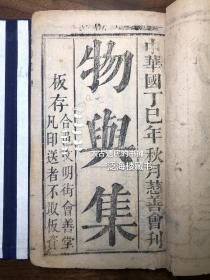 中華國丁巳年秋月慈善會刊
物與集
板存合川文明街會善堂
凡印送者不取板資